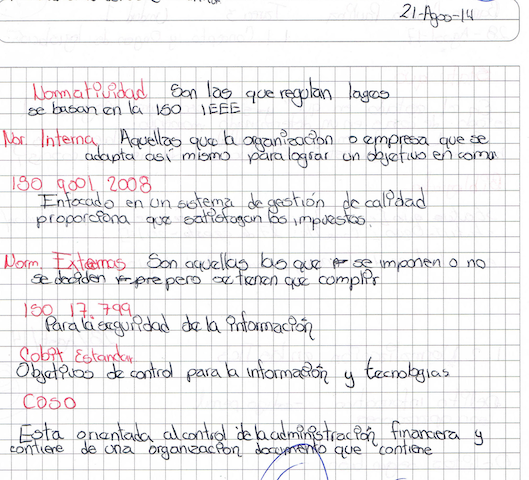 21-Ago-14
Normatividad Son las que regulan lagos
se basan en la ISO IEEE
Nor Interna Aquellas que la organización o empresa que se
adapta asi mismo para lograr un objetivo en comun
ISO 9001, 2008
Enfocado en un sistema de gestión de calidad
proporciona que satisfagan los impuestos.
Norm. Externas Son aquellas las que se imponen o no
se deciden pre pero se tienen que complir
ISO 17.799
Para la seguridad de la información
Cobit Estandar
Objetivos de control para la información y tecnologias
COSO
Esta orientada al control de la administración financera y
contiere de una organización documento que contiene